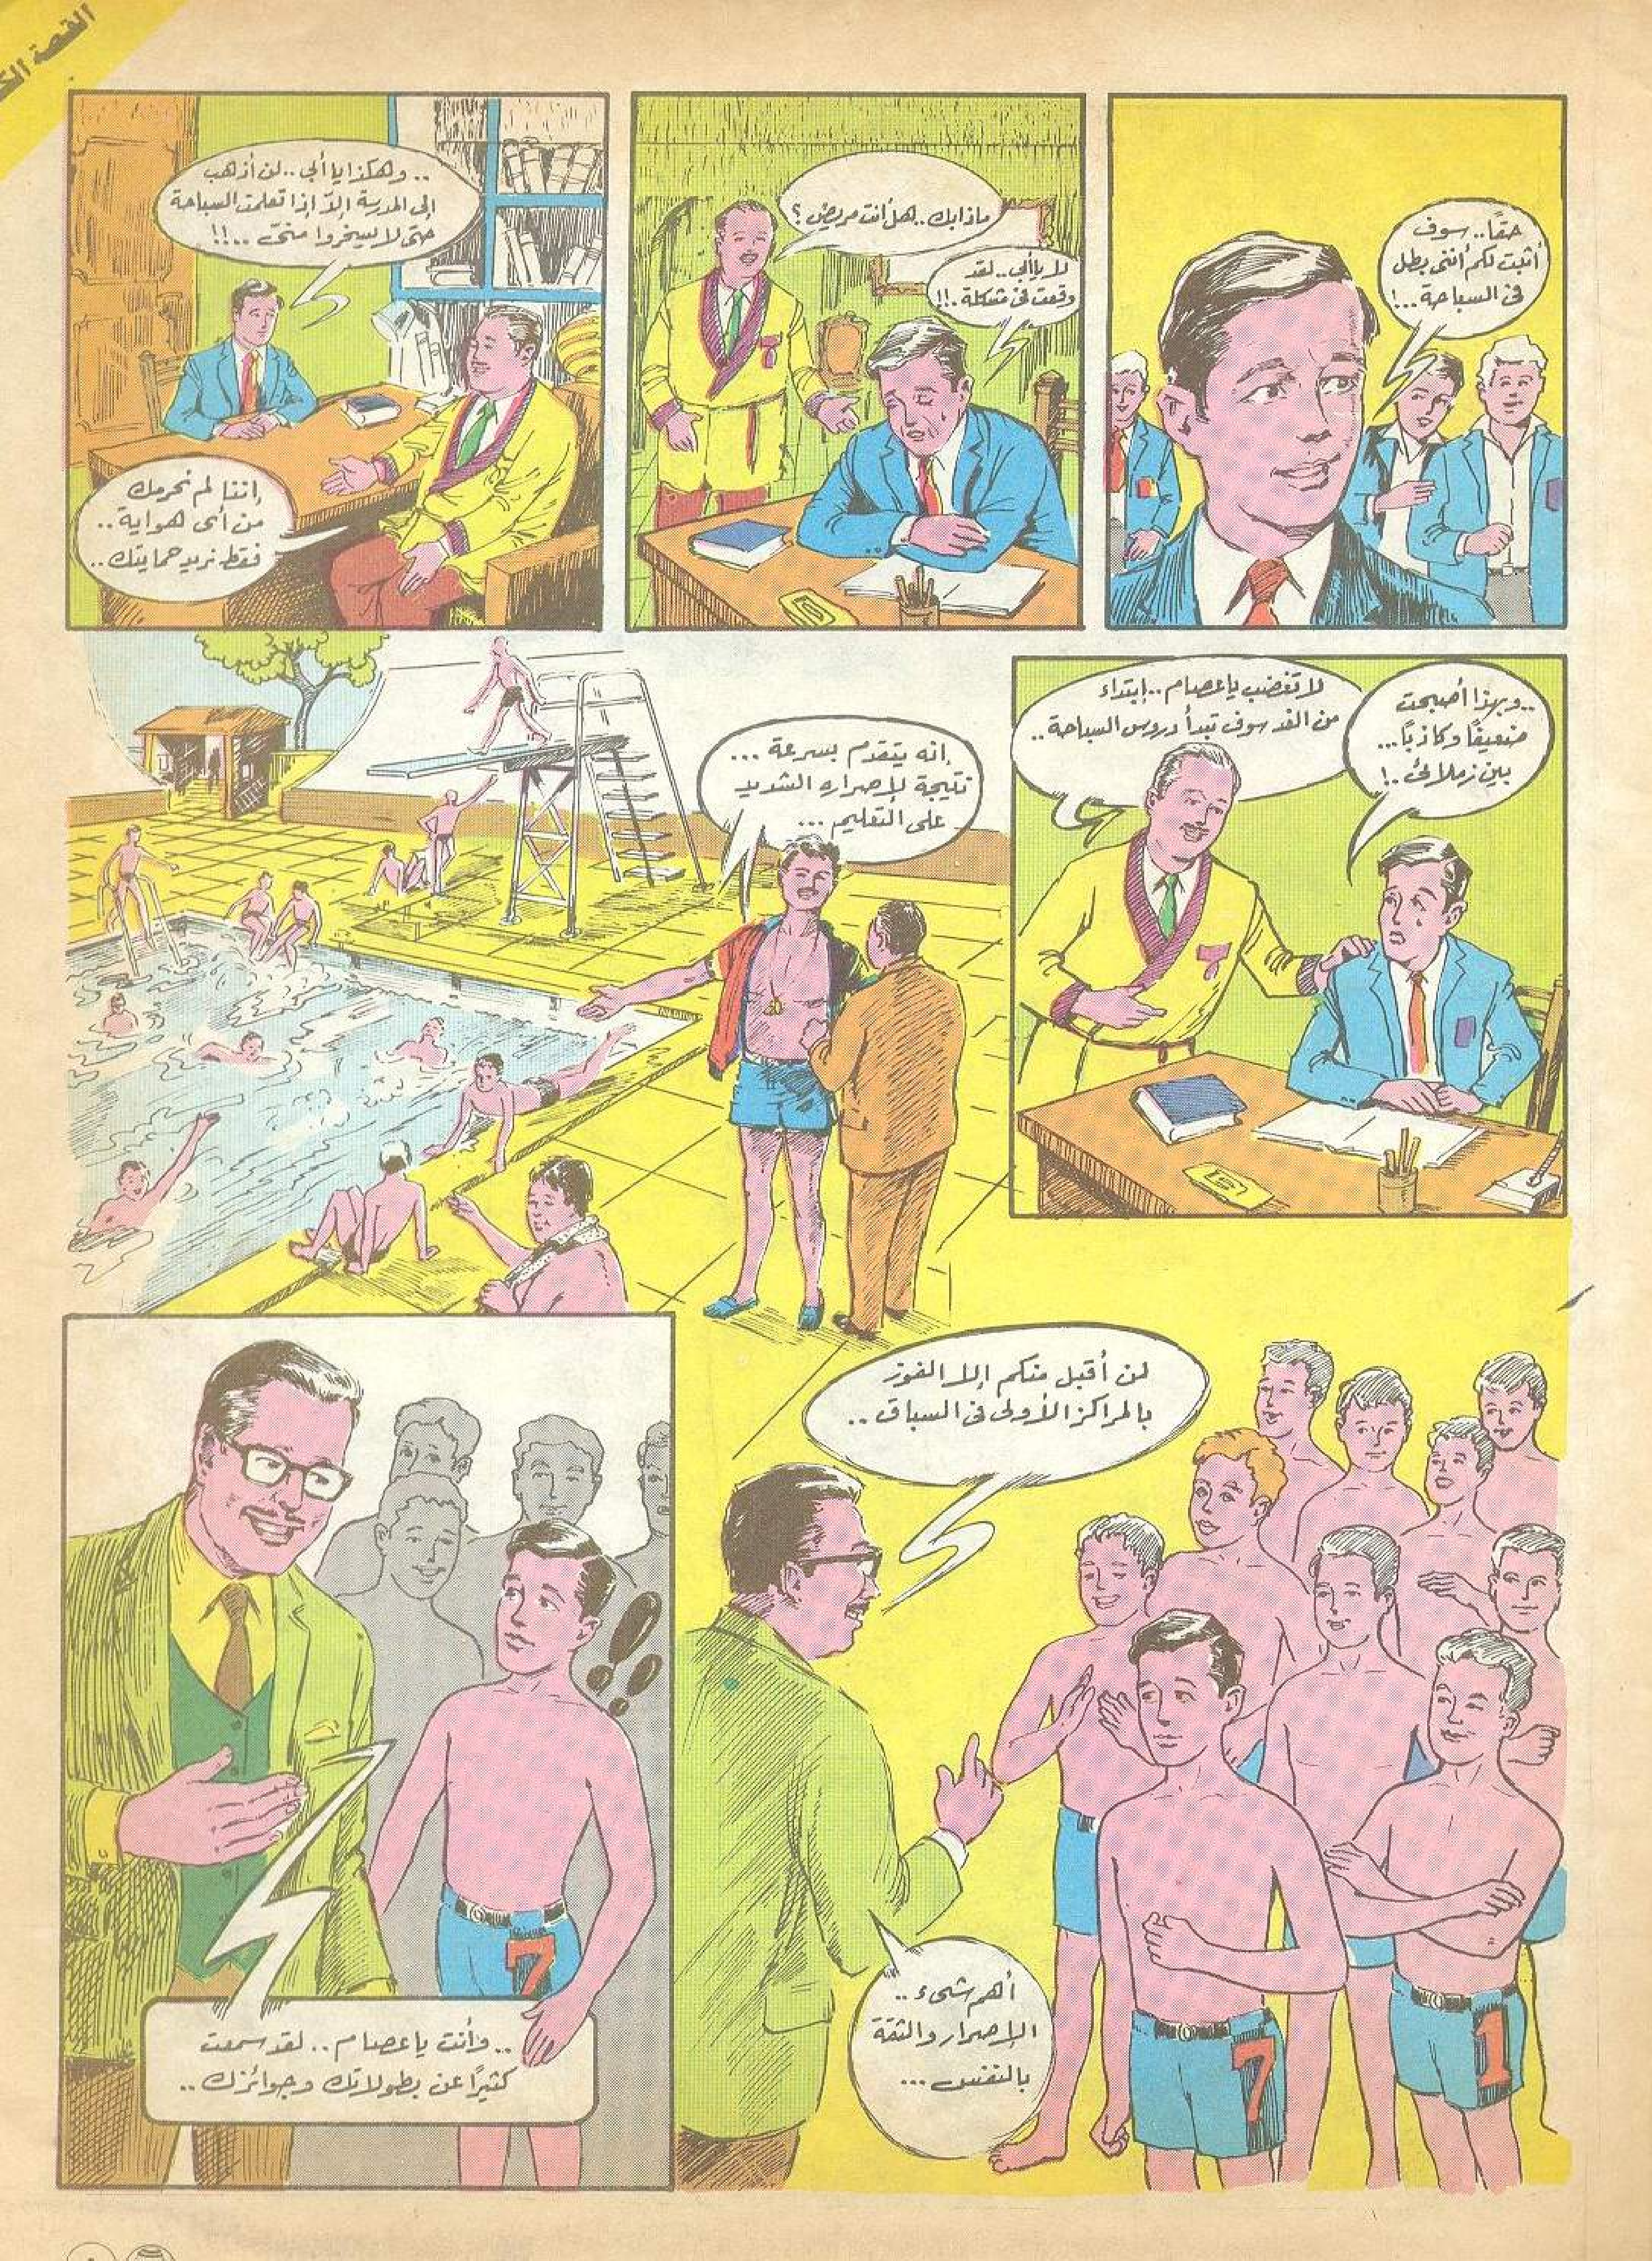 القصة
حقاً.. سوف
أثبت لكم أننى بطل
فى السباحة..!
ماذا بك.. هل أنت مريض؟
لا يا أبى.. لقد
وقعت فى مشكلة.!!
.. وهكذا يا أبى.. لن أذهب
إلى المدرسة إلاّ إذا تعلمت السباحة
حتى لا يسخروا منىّ ..!!
إننا لم نحرمك
من أى هواية..
فقط نريد حمايتك..
..وبهذا أصبحت
ضعيفاً وكاذباً...
بين زملائى.!
لا تغضب يا عصام.. إبتداء
من الغد سوف تبدأ دروس السباحة..
إنه يتقدم بسرعة ...
نتيجة لإصراره الشديد
على التعليم ...
لن أقبل منكم إلا الفوز
بالمراكز الأولى فى السباق ..
أهم شىء ..
الإصرار والثقة
بالنفس ...
7
1
.. وأنت يا عصام .. لقد سمعت
كثيرًا عن بطولاتك وجوائزك ..
7